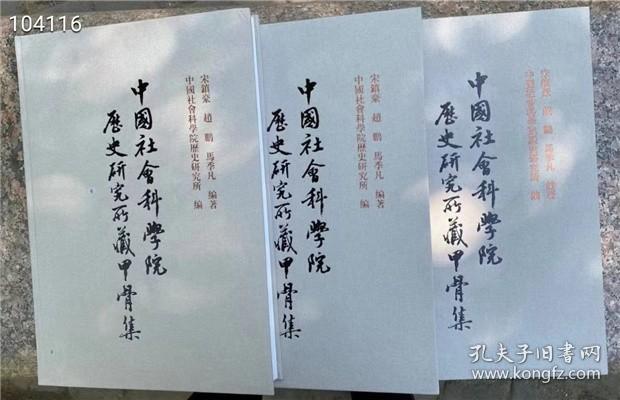 104116
宋鎮豪 趙鵬 馬季凡 編著
中國社會科學院歷史研究所 編
中國社會科學院
歷史研究所藏甲骨集
宋鎮豪 趙鵬 馬季凡 編著
中國社會科學院歷史研究所 編
中國社會科學院
歷史研究所藏甲骨集
中國社會科學院
歷史研究所藏甲骨集
孔夫子旧书网
www.kongfz.com